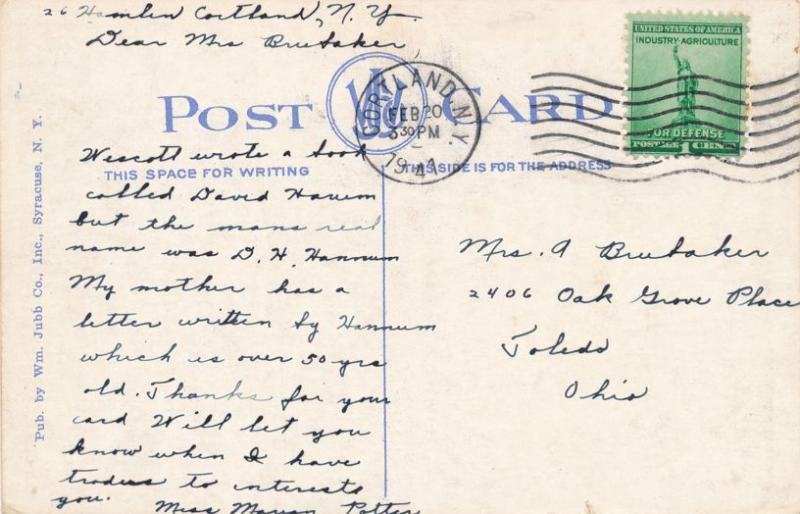 26 Hamlin Cortland, N.Y.
Dear Mrs Brubaker
POST CARD
CORTLAND, N.Y.
FEB 20
3 30 PM
1941
UNITED STATES OF AMERICA
INDUSTRY-AGRICULTURE
FOR DEFENSE
POSTAGE 1 CENT
THIS SPACE FOR WRITING
THIS SIDE IS FOR THE ADDRESS
Wescott wrote a book
called David Harum
but the mans real
name was D. H. Hannum
My mother has a
letter written by Hannum
which is over 50 yrs
old. Thanks for your
card Will let you
know when I have
traders to interests
you.
Miss Marian Potter
Mrs. A Brubaker
2406 Oak Grove Place
Toledo
Ohio
Pub. by Wm. Jubb Co., Inc., Syracuse, N. Y.